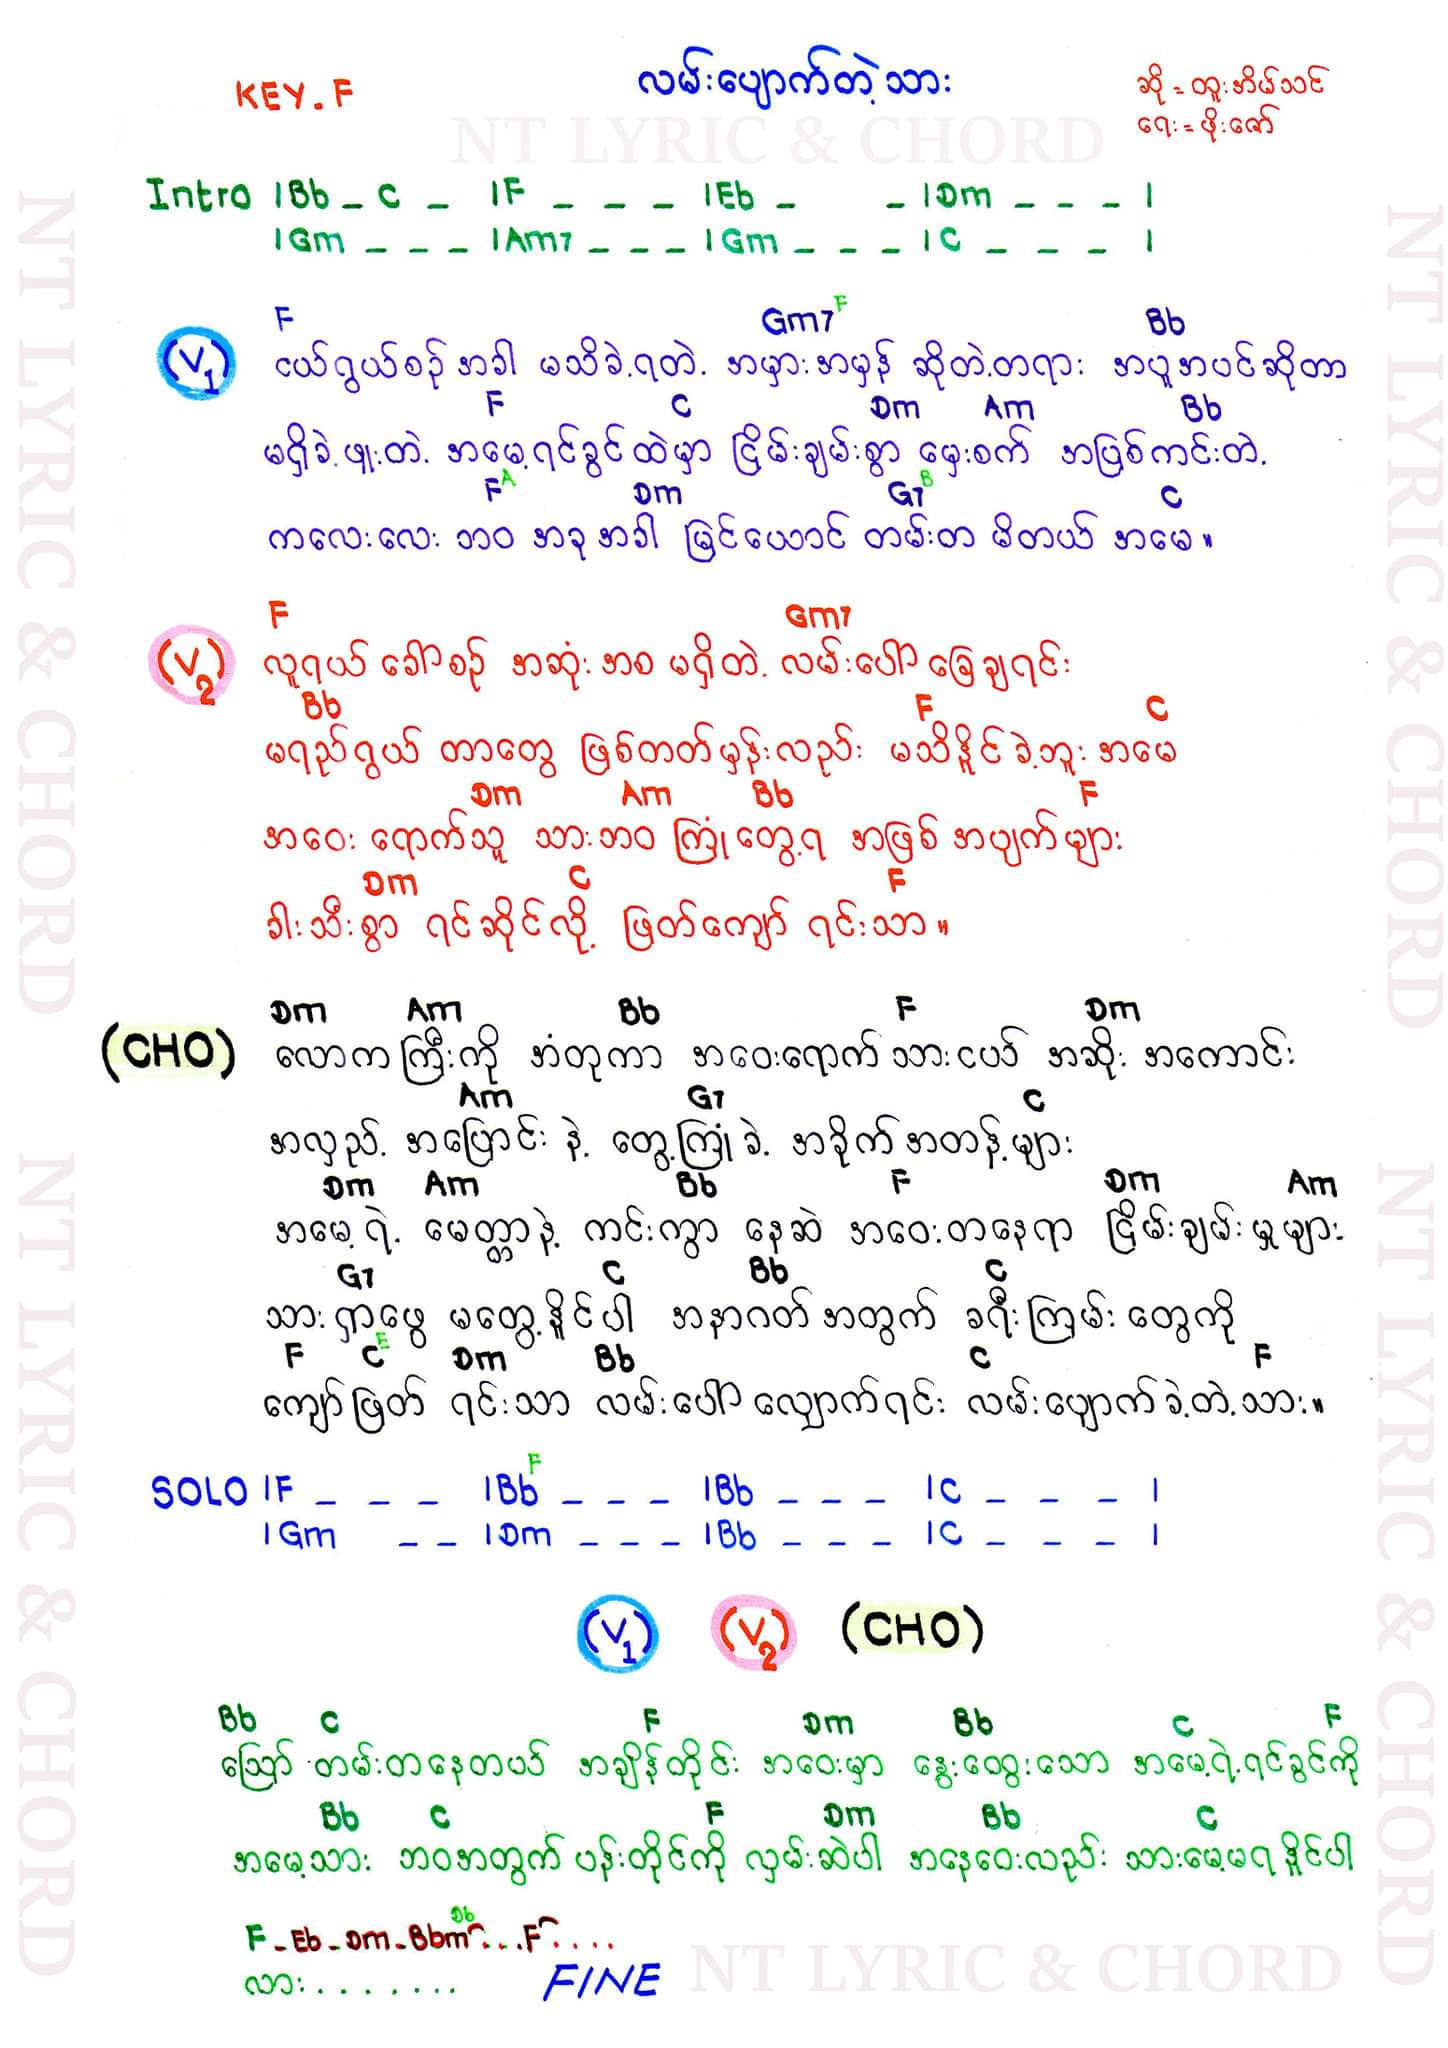 လမ်းပျောက်တဲ့သား
KEY. F
ဆို = ထူးအိမ်သင်
ရေး = ဖိုးဇော်
NT LYRIC & CHORD
Intro |Bb _ C _ |F _ _ _ |Eb _ _ |Dm _ _ _ |
|Gm _ _ _ |Am7 _ _ _ |Gm _ _ _ |C _ _ _ |
F Gm7 F Bb
(V1) ငယ်ရွယ်စဉ်အခါ မသိခဲ့ရတဲ့ အမှားအမှန် ဆိုတဲ့တရား အပူအပင်ဆိုတာ
F C Dm Am Bb
မရှိခဲ့ဖူးတဲ့ အမေ့ရင်ခွင်ထဲမှာ ငြိမ်းချမ်းစွာ မှေးစက် အပြစ်ကင်းတဲ့
F A Dm G7 B C
ကလေးလေး ဘဝ အခုအခါ မြင်ယောင် တမ်းတ မိတယ် အမေ။
F Gm7
(V2) လူရယ် ခေါ်စဉ် အဆုံးအစ မရှိတဲ့ လမ်းပေါ် ခြေချရင်း
Bb F C
မရည်ရွယ် တာတွေ ဖြစ်တတ်မှန်းလည်း မသိနိူင်ခဲ့ဘူး အမေ
Dm Am Bb F
အဝေး ရောက်သူ သားဘဝ ကြုံတွေ့ရ အဖြစ် အပျက်များ
Dm C F
ခါးသီးစွာ ရင်ဆိုင်လို့ ဖြတ်ကျော် ရင်းသာ။
Dm Am Bb F Dm
(CHO) လောကကြီးကို အံတုကာ အဝေးရောက် သားငယ် အဆိုး အကောင်း
Am G7 C
အလှည့် အပြောင်း နဲ့ တွေ့ကြုံခဲ့ အခိုက်အတန့်များ
Dm Am Bb F Dm Am
အမေ့ရဲ့ မေတ္တာနဲ့ ကင်းကွာ နေဆဲ အဝေးတနေရာ ငြိမ်းချမ်းမှုများ
G7 C Bb C
သားရှာဖွေ မတွေ့နိူင်ပါ အနာဂတ်အတွက် ခရီးကြမ်းတွေကို
F C E Dm Bb C F
ကျော်ဖြတ် ရင်းသာ လမ်းပေါ် လျှောက်ရင်း လမ်းပျောက်ခဲ့တဲ့သား။
SOLO |F _ _ _ |Bb F _ _ _ |Bb _ _ _ |C _ _ _ |
|Gm _ _ |Dm _ _ _ |Bb _ _ _ |C _ _ _ |
(V1) (V2) (CHO)
Bb C F Dm Bb C F
ဩော် တမ်းတနေတယ် အချိန်တိုင်း အဝေးမှာ နွေးထွေးသော အမေ့ရဲ့ရင်ခွင်ကို
Bb C F Dm Bb C
အမေ့သား ဘဝအတွက် ပန်းတိုင်ကို လှမ်းဆဲပါ အနေဝေးလည်း သားမေ့မရနိူင်ပါ
F - Eb - Dm - Bbm Db ... F ....
လား ........ FINE
NT LYRIC & CHORD
NT LYRIC & CHORD
NT LYRIC & CHORD
NT LYRIC & CHORD
NT LYRIC & CHORD